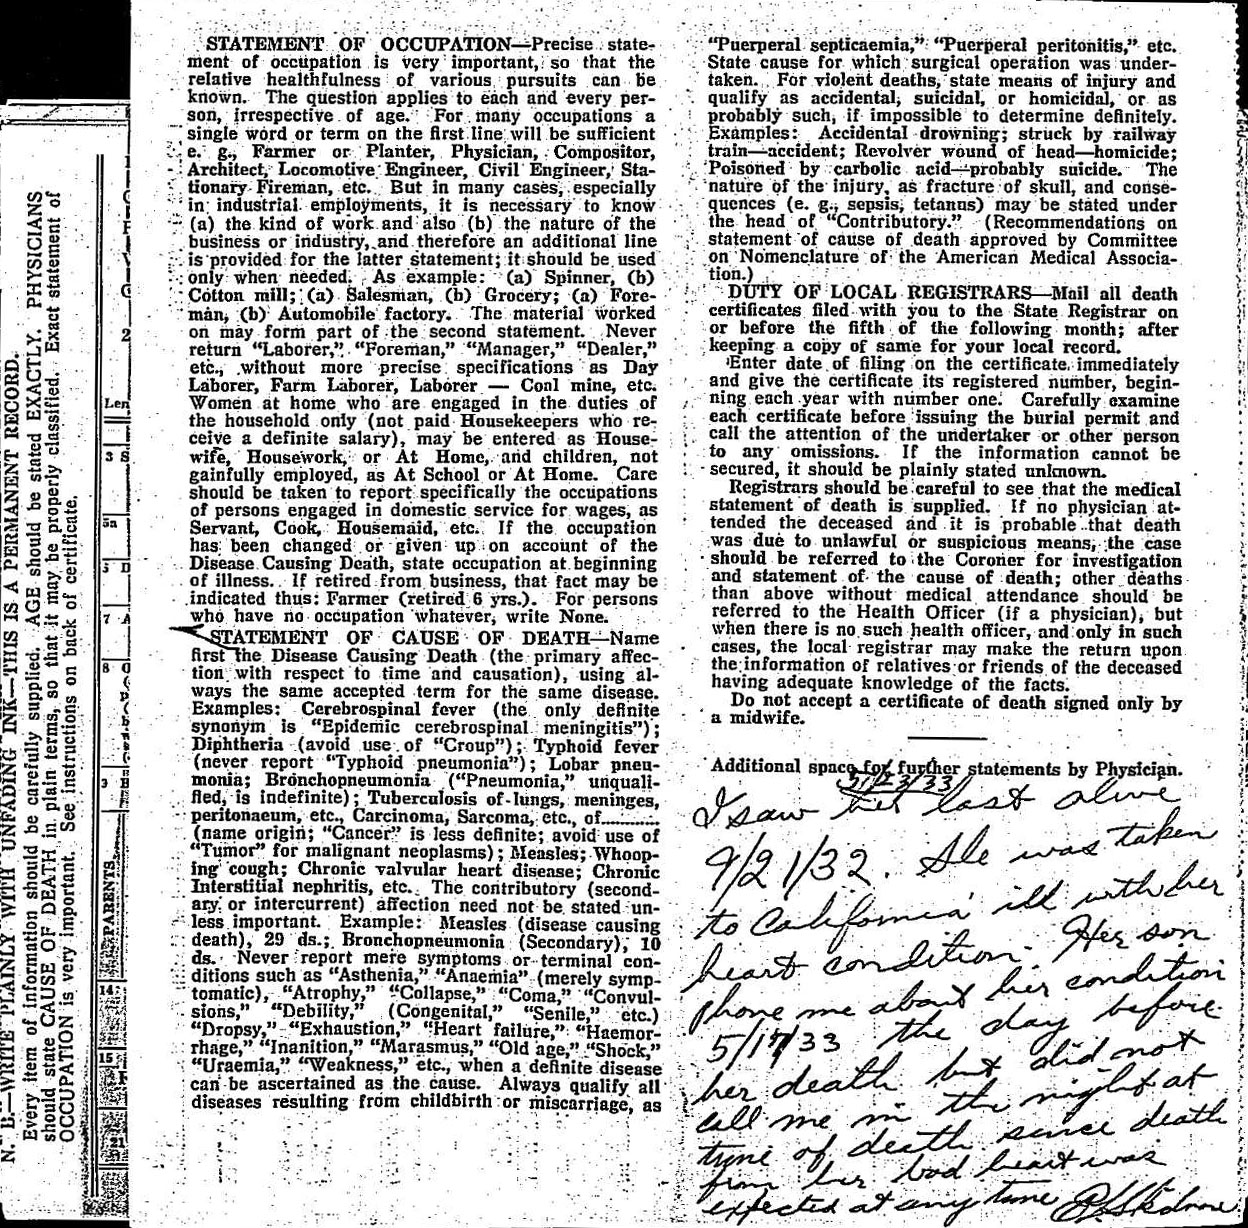 N. B.—WRITE PLAINLY WITH UNFADING INK—THIS IS A PERMANENT RECORD.
Every item of information should be carefully supplied. AGE should be stated EXACTLY. PHYSICIANS
should state CAUSE OF DEATH in plain terms, so that it may be properly classified. Exact statement of
OCCUPATION is very important. See instructions on back of certificate.
2
Len
3 S
5a
5 D
7 A
8
9
PARENTS
14
15
21
STATEMENT OF OCCUPATION—Precise state-
ment of occupation is very important, so that the
relative healthfulness of various pursuits can be
known. The question applies to each and every per-
son, irrespective of age. For many occupations a
single word or term on the first line will be sufficient
e. g., Farmer or Planter, Physician, Compositor,
Architect, Locomotive Engineer, Civil Engineer, Sta-
tionary Fireman, etc. But in many cases, especially
in industrial employments, it is necessary to know
(a) the kind of work and also (b) the nature of the
business or industry, and therefore an additional line
is provided for the latter statement; it should be used
only when needed. As example: (a) Spinner, (b)
Cotton mill; (a) Salesman, (b) Grocery; (a) Fore-
man, (b) Automobile factory. The material worked
on may form part of the second statement. Never
return "Laborer," "Foreman," "Manager," "Dealer,"
etc., without more precise specifications as Day
Laborer, Farm Laborer, Laborer — Coal mine, etc.
Women at home who are engaged in the duties of
the household only (not paid Housekeepers who re-
ceive a definite salary), may be entered as House-
wife, Housework, or At Home, and children, not
gainfully employed, as At School or At Home. Care
should be taken to report specifically the occupations
of persons engaged in domestic service for wages, as
Servant, Cook, Housemaid, etc. If the occupation
has been changed or given up on account of the
Disease Causing Death, state occupation at beginning
of illness. If retired from business, that fact may be
indicated thus: Farmer (retired 6 yrs.). For persons
who have no occupation whatever, write None.
STATEMENT OF CAUSE OF DEATH—Name
first the Disease Causing Death (the primary affec-
tion with respect to time and causation), using al-
ways the same accepted term for the same disease.
Examples: Cerebrospinal fever (the only definite
synonym is "Epidemic cerebrospinal meningitis");
Diphtheria (avoid use of "Croup"); Typhoid fever
(never report "Typhoid pneumonia"); Lobar pneu-
monia; Bronchopneumonia ("Pneumonia," unquali-
fied, is indefinite); Tuberculosis of lungs, meninges,
peritonaeum, etc., Carcinoma, Sarcoma, etc., of..........
(name origin; "Cancer" is less definite; avoid use of
"Tumor" for malignant neoplasms); Measles; Whoop-
ing cough; Chronic valvular heart disease; Chronic
Interstitial nephritis, etc. The contributory (second-
ary or intercurrent) affection need not be stated un-
less important. Example: Measles (disease causing
death), 29 ds.; Bronchopneumonia (Secondary), 10
ds. Never report mere symptoms or terminal con-
ditions such as "Asthenia," "Anaemia" (merely symp-
tomatic), "Atrophy," "Collapse," "Coma," "Convul-
sions," "Debility," (Congenital," "Senile," etc.)
"Dropsy," "Exhaustion," "Heart failure," "Haemor-
rhage," "Inanition," "Marasmus," "Old age," "Shock,"
"Uraemia," "Weakness," etc., when a definite disease
can be ascertained as the cause. Always qualify all
diseases resulting from childbirth or miscarriage, as
"Puerperal septicaemia," "Puerperal peritonitis," etc.
State cause for which surgical operation was under-
taken. For violent deaths, state means of injury and
qualify as accidental, suicidal, or homicidal, or as
probably such, if impossible to determine definitely.
Examples: Accidental drowning; struck by railway
train—accident; Revolver wound of head—homicide;
Poisoned by carbolic acid—probably suicide. The
nature of the injury, as fracture of skull, and conse-
quences (e. g., sepsis, tetanus) may be stated under
the head of "Contributory." (Recommendations on
statement of cause of death approved by Committee
on Nomenclature of the American Medical Associa-
tion.)
DUTY OF LOCAL REGISTRARS—Mail all death
certificates filed with you to the State Registrar on
or before the fifth of the following month; after
keeping a copy of same for your local record.
Enter date of filing on the certificate immediately
and give the certificate its registered number, begin-
ning each year with number one. Carefully examine
each certificate before issuing the burial permit and
call the attention of the undertaker or other person
to any omissions. If the information cannot be
secured, it should be plainly stated unknown.
Registrars should be careful to see that the medical
statement of death is supplied. If no physician at-
tended the deceased and it is probable that death
was due to unlawful or suspicious means, the case
should be referred to the Coroner for investigation
and statement of the cause of death; other deaths
than above without medical attendance should be
referred to the Health Officer (if a physician), but
when there is no such health officer, and only in such
cases, the local registrar may make the return upon
the information of relatives or friends of the deceased
having adequate knowledge of the facts.
Do not accept a certificate of death signed only by
a midwife.
Additional space for further statements by Physician.
I saw her last alive
9/21/32. She was taken
to California ill with her
heart condition. Her son
phone me about her condition
5/17/33 the day before
her death but did not
call me in the night at
time of death since death
from her bad heart was
expected at any time